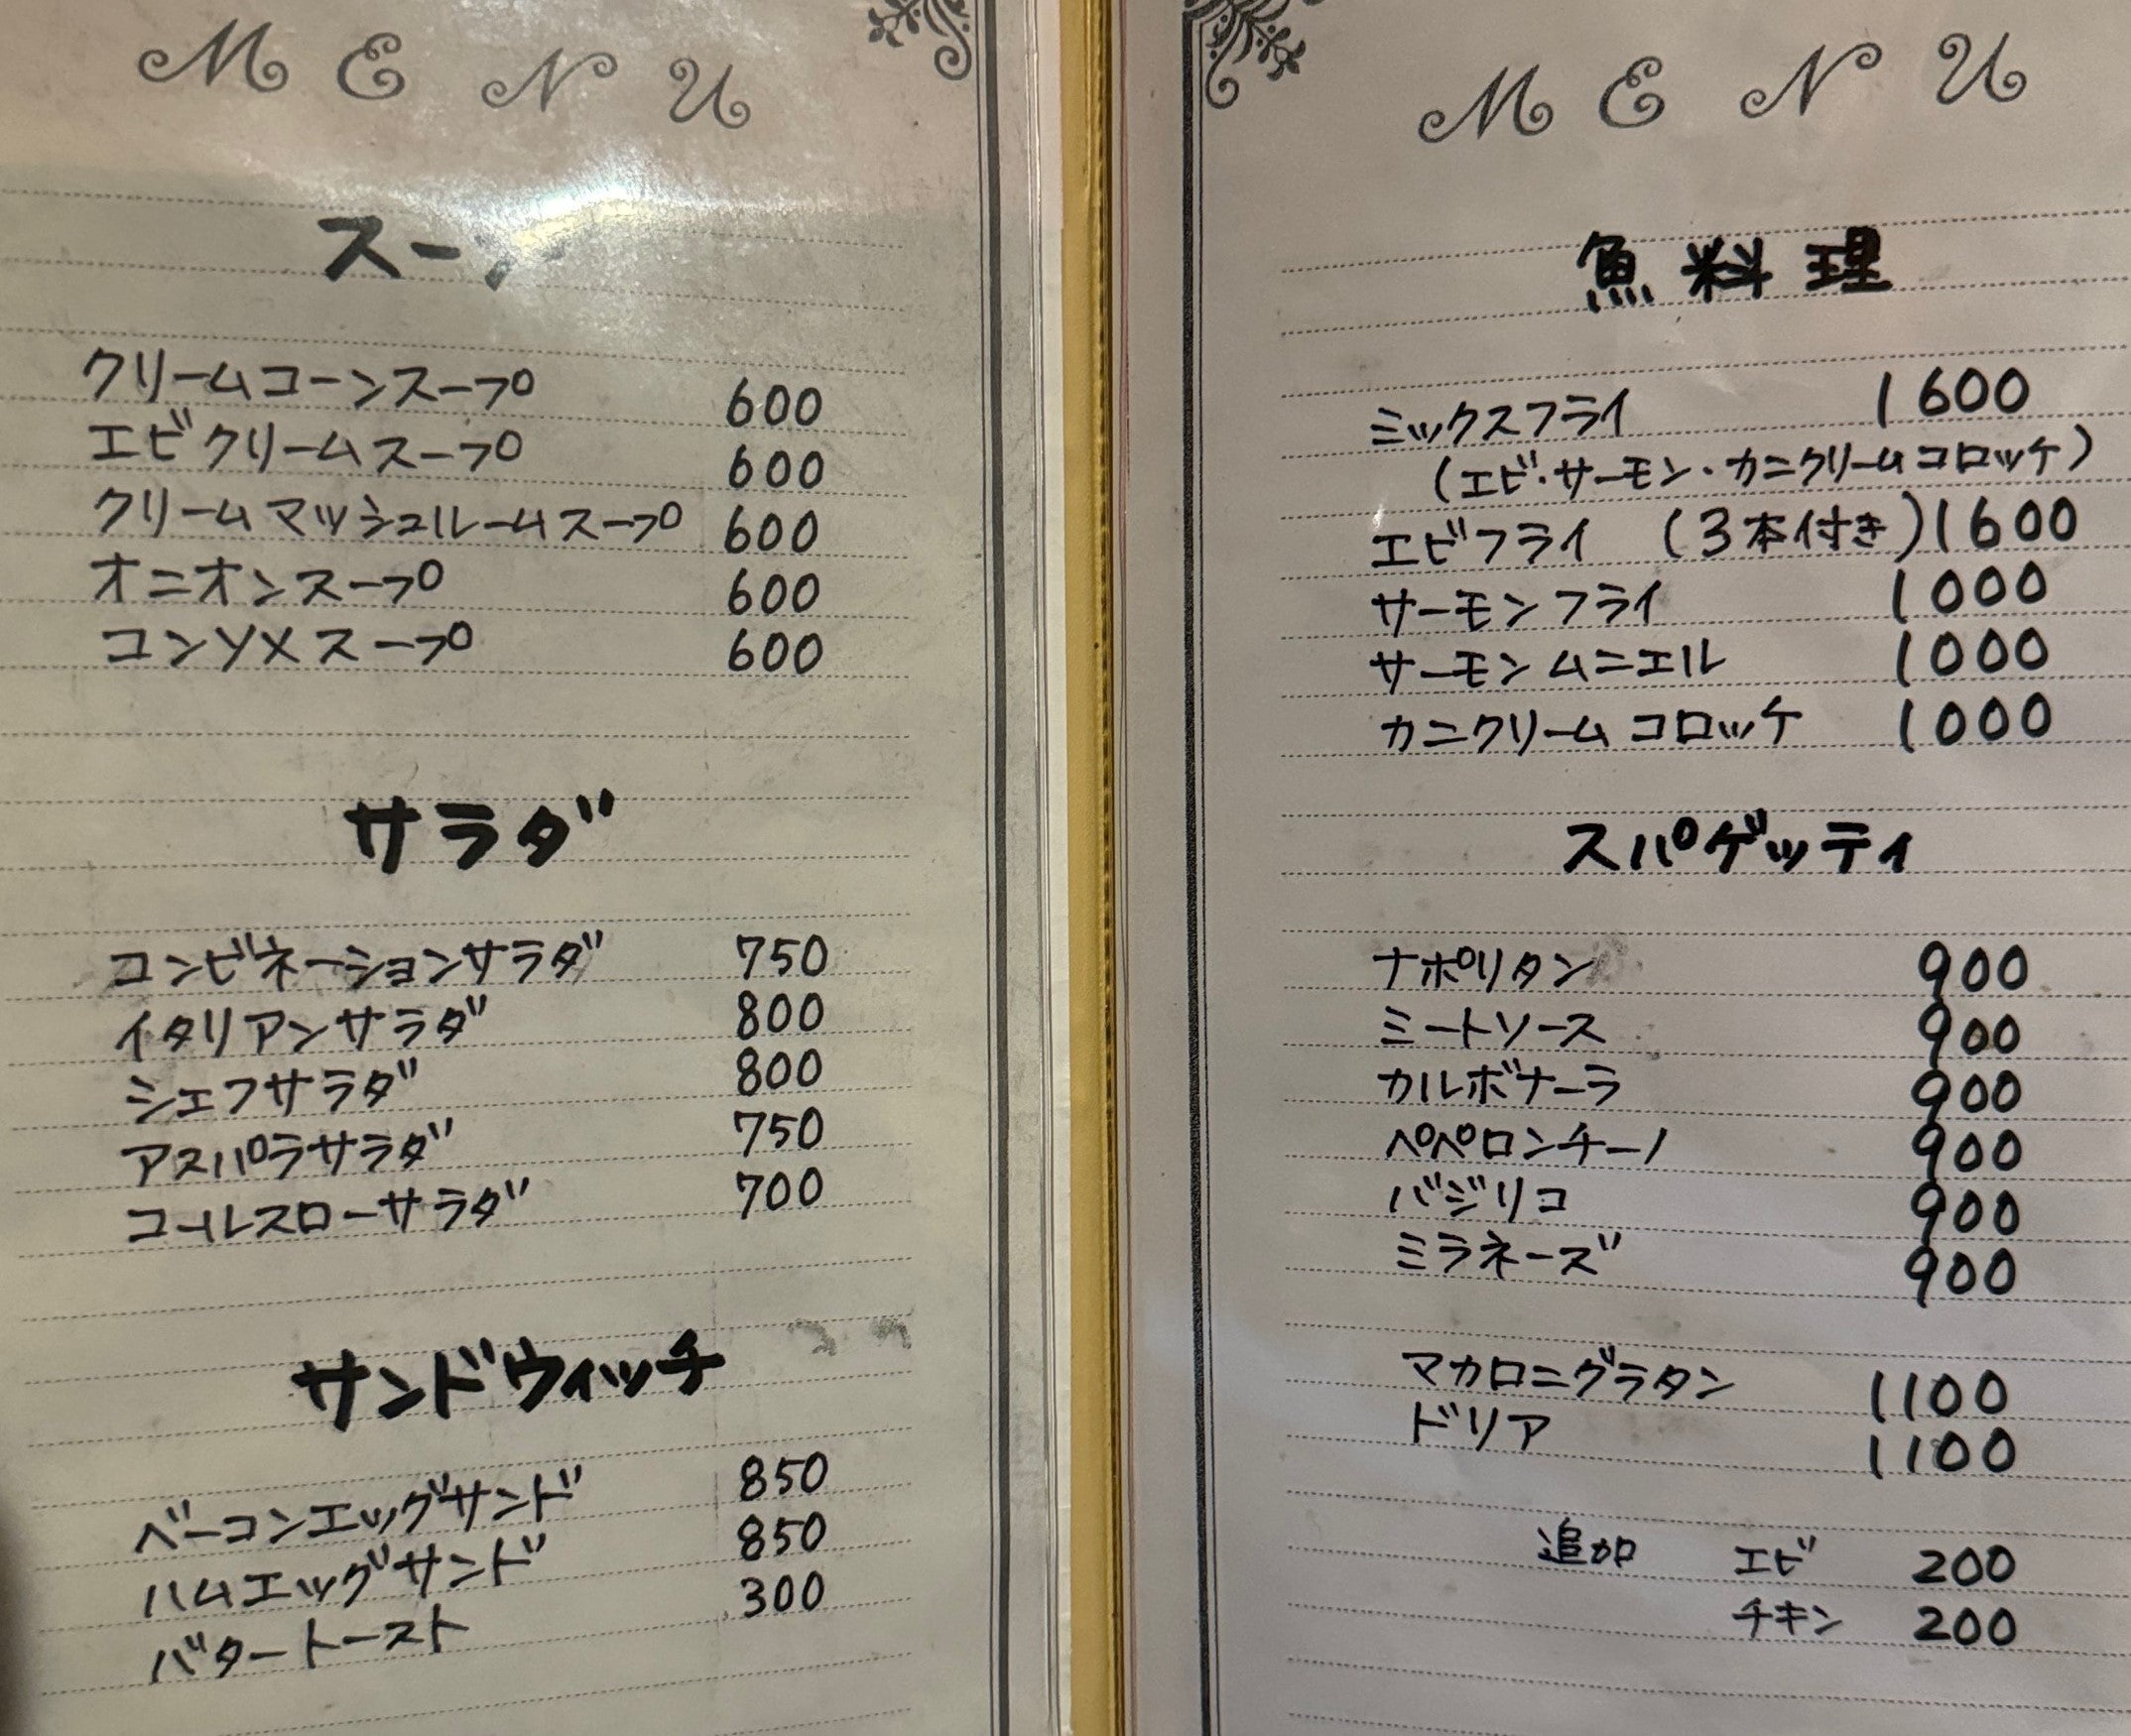 MENU
スープ
クリームコーンスープ 600
エビクリームスープ 600
クリームマッシュルームスープ 600
オニオンスープ 600
コンソメスープ 600
サラダ
コンビネーションサラダ 750
イタリアンサラダ 800
シェフサラダ 800
アスパラサラダ 750
コールスローサラダ 700
サンドウィッチ
ベーコンエッグサンド 850
ハムエッグサンド 850
バタートースト 300
MENU
魚料理
ミックスフライ 1600
(エビ・サーモン・カニクリームコロッケ)
エビフライ (3本付き) 1600
サーモンフライ 1000
サーモンムニエル 1000
カニクリームコロッケ 1000
スパゲッティ
ナポリタン 900
ミートソース 900
カルボナーラ 900
ペペロンチーノ 900
バジリコ 900
ミラネーズ 900
マカロニグラタン 1100
ドリア 1100
追加 エビ 200
チキン 200